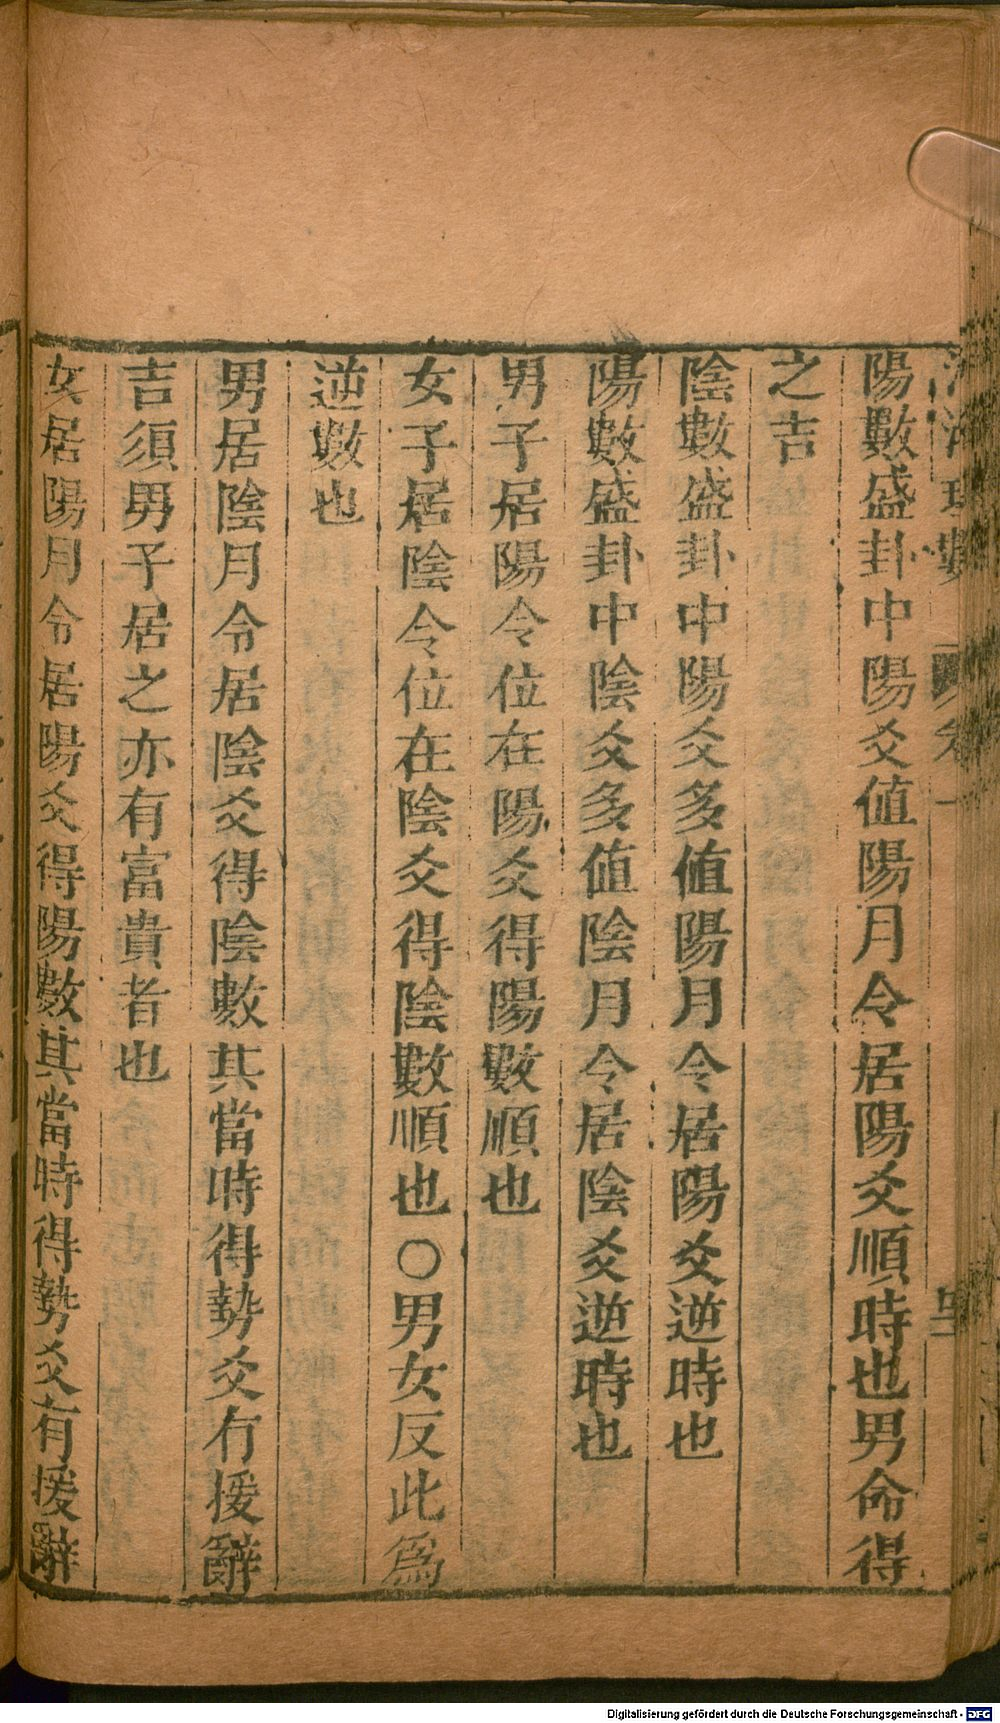 陽數盛卦中陽爻値陽月令居陽爻順時也男命得
之吉
陰數盛卦中陽爻多値陽月令居陽爻逆時也
陽數盛卦中陰爻多値陰月令居陰爻逆時也
男子居陽令位在陽爻得陽數順也
女子居陰令位在陰爻得陰數順也○男女反此爲
逆數也
男居陰月令居陰爻得陰數其當時得勢爻有援辭
吉須男子居之亦有富貴者也
女居陽月令居陽爻得陽數其當時得勢爻有援辭
Digitalisierung gefördert durch die Deutsche Forschungsgemeinschaft - DFG